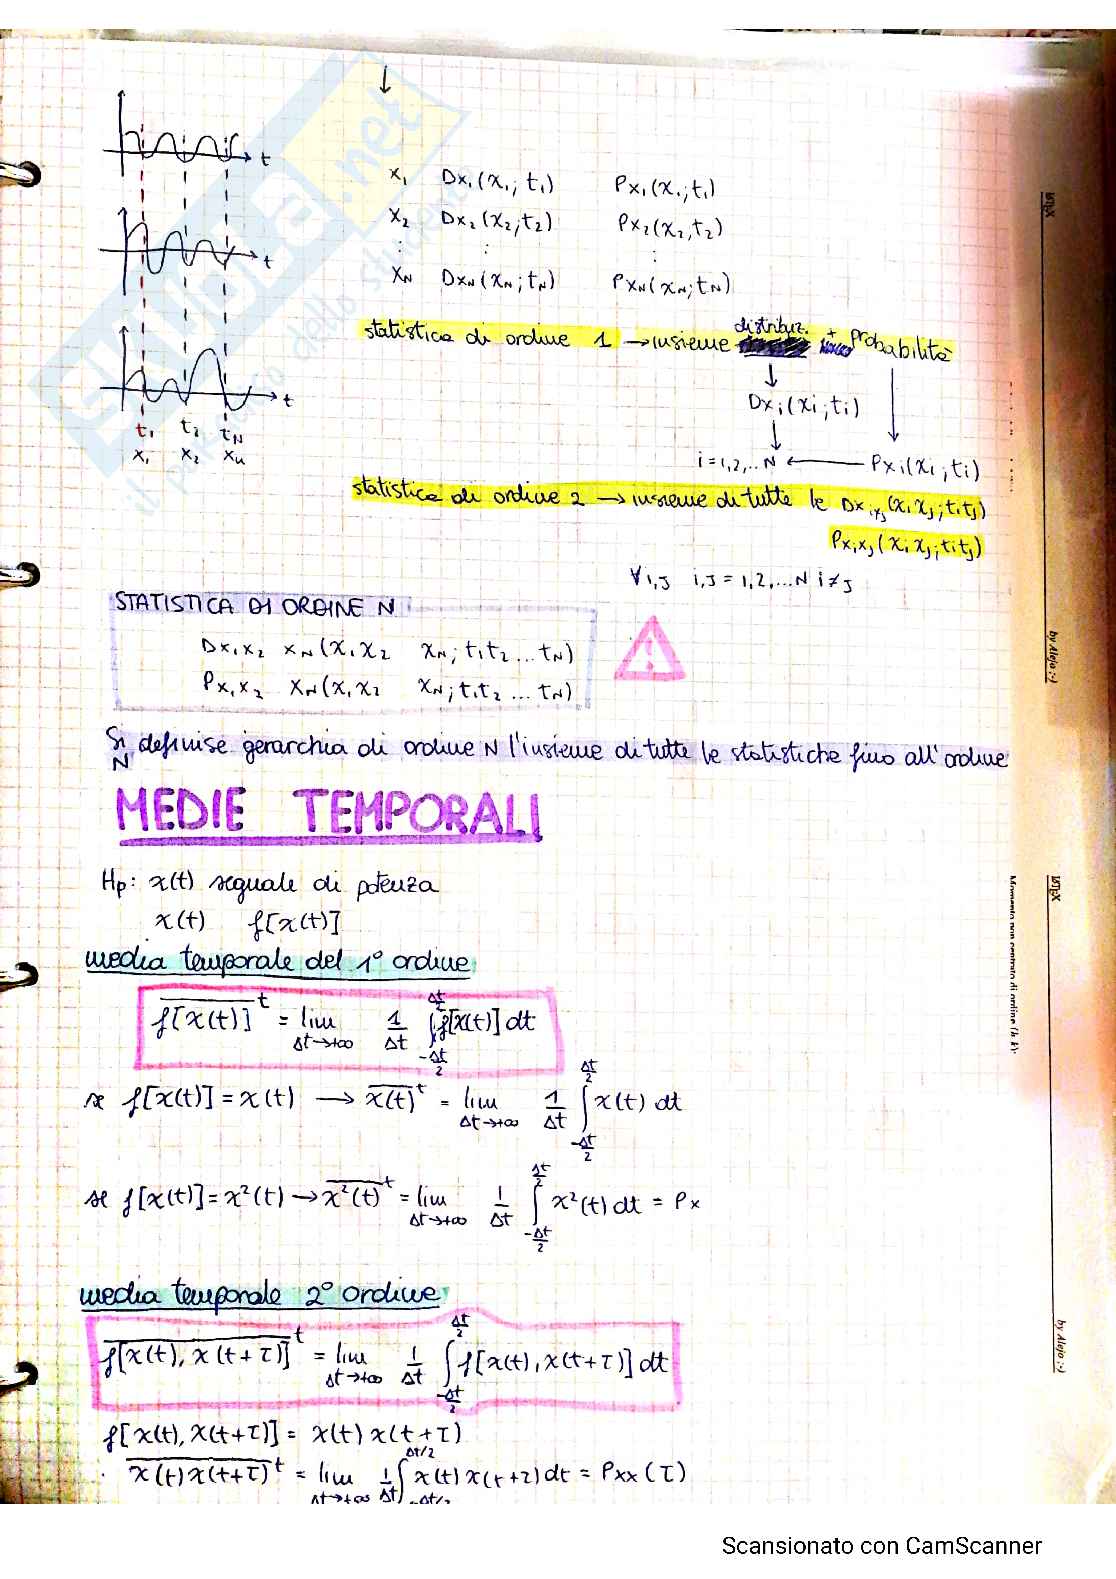 t
x₁ Dx₁(x₁; t₁) Px₁(x₁; t₁)
x₂ Dx₂(x₂; t₂) Px₂(x₂, t₂)
⋮ ⋮ ⋮
t
x_N Dx_N(x_N; t_N) Px_N(x_N; t_N)
statistica di ordine 1 → insieme distribuz. + probabilità
t
Dxᵢ(xᵢ; tᵢ)
t₁ t₂ t_N
x₁ x₂ xₙ
i = 1,2,.. N ← Pxᵢ(xᵢ; tᵢ)
statistica di ordine 2 → insieme di tutte le Dxᵢxⱼ(xᵢ xⱼ; tᵢ tⱼ)
Pxᵢxⱼ(xᵢ xⱼ; tᵢ tⱼ)
∀ i,J i,J = 1,2,...N i ≠ J
STATISTICA DI ORDINE N
Dx₁x₂ x_N(x₁ x₂ x_N; t₁ t₂ ... t_N)
Px₁x₂ x_N(x₁ x₂ x_N; t₁ t₂ ... t_N)
Si definise gerarchia di ordine N l'insieme di tutte le statistiche fino all'ordine
N
MEDIE TEMPORALI
Hp: x(t) segnale di potenza
x(t) f[x(t)]
media temporale del 1° ordine
\overline{f[x(t)]}^t = lim_{Δt→+∞} 1/Δt ∫_{-Δt/2}^{Δt/2} f[x(t)] dt
se f[x(t)] = x(t) → \overline{x(t)}^t = lim_{Δt→+∞} 1/Δt ∫_{-Δt/2}^{Δt/2} x(t) dt
se f[x(t)] = x²(t) → \overline{x²(t)}^t = lim_{Δt→+∞} 1/Δt ∫_{-Δt/2}^{Δt/2} x²(t) dt = Px
media temporale 2° ordine
\overline{f[x(t), x(t+τ)]}^t = lim_{Δt→+∞} 1/Δt ∫_{-Δt/2}^{Δt/2} f[x(t), x(t+τ)] dt
f[x(t), x(t+τ)] = x(t) x(t+τ)
\overline{x(t) x(t+τ)}^t = lim_{Δt→+∞} 1/Δt ∫_{-Δt/2}^{Δt/2} x(t) x(t+τ) dt = Pxx(τ)
LATEX
by Alejo :-)
LATEX
Momento non centrato di ordine (h, k):
by Alejo :-)
skuola.net
Scansionato con CamScanner